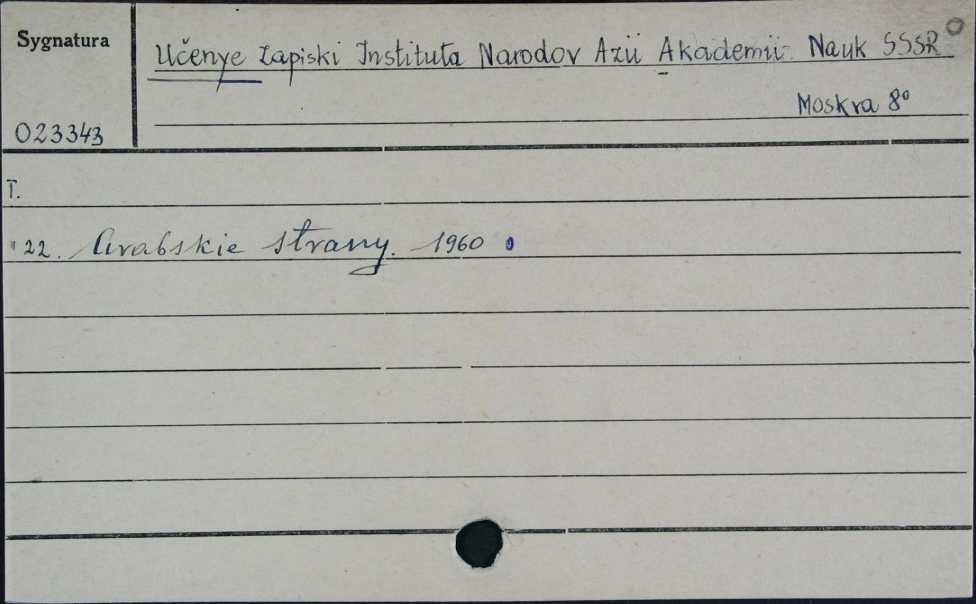 Sygnatura
Učenye Zapiski Instituta Narodov Azii Akademii Nauk SSSR
Moskva 8°
023343
T.
22. Arabskie strany. 1960